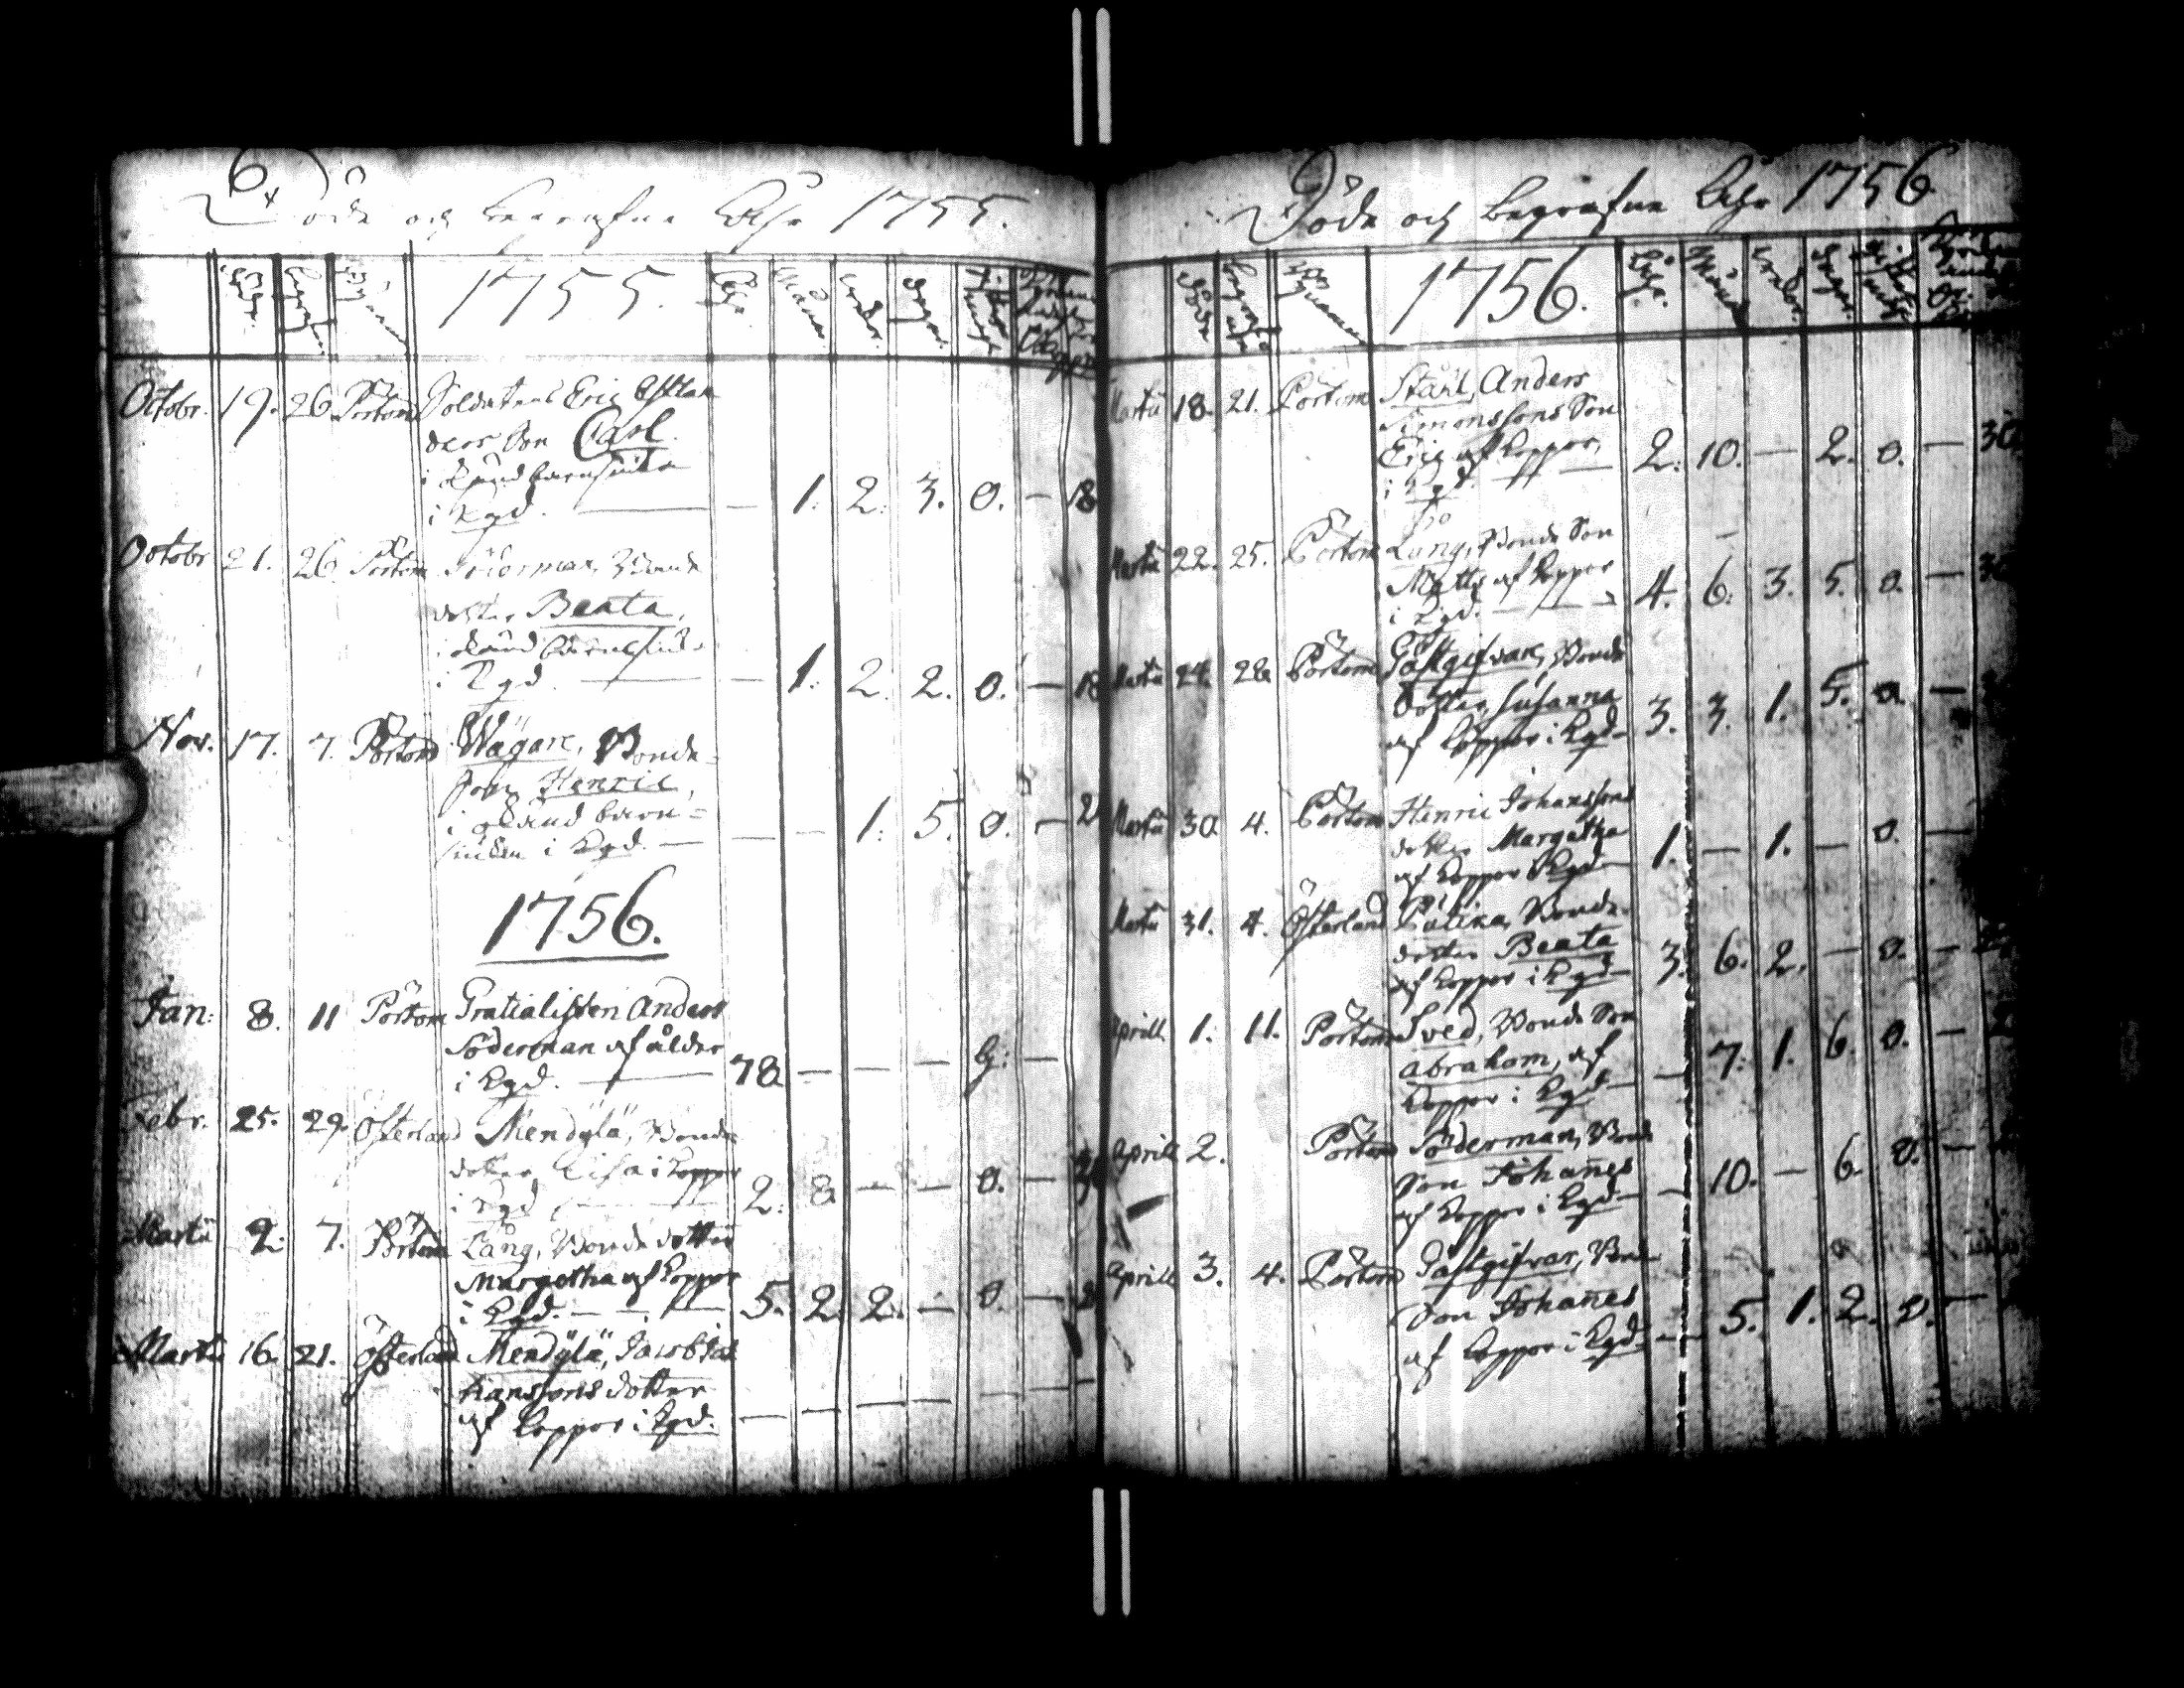 6.
Döde och begrafne Åhr 1755.
1755.
Octobr. 19. 26. Pörtom Soldatens Eric Östlan
ders Son Carl
i okänd barnsiuka
i Kgd. — — 1. 2. 3. 0. — 18
Octobr 21. 26. Pörtom Söderman, Bonde
dotter Beata,
i okänd barnsiuk
i Kgd. — — 1. 2. 2. 0. — 18
Nov. 17. 7. Pörtom Wägare, Bonde
son Henric,
i okänd barn=
siuka i Kgd. — — — 1. 5. 0. — 2
1756.
Jan: 8. 11 Pörtom Gratialisten Anders
Söderman af ålder
i Kgd. — 78 — — — g: —
Febr. 25. 29. Österland Mendÿlä, Bonde
dotter Lisa i koppor
i Kgd — 2. 8 — — 0. —
Martii 2. 7. Pörtom Lång, Bonde dotter
Margetha af koppor
i Kgd. — 5. 2. 2. — 0. —
Martii 16. 21. Österland Mendÿlä, Jacob Jo
hanssons dotter
af koppor i Kgd. — — — —
Döde och begrafne Åhr 1756
1756.
Martii 18. 21. Pörtom Stärk, Anders
Simonssons Son
Eric af koppor,
i Kgd. — 2. 10. — 2. 0. — 30
Martii 22. 25. Pörtom Lång, Bonde Son
Matts af koppor
i Kgd. — 4. 6. 3. 5. 0. —
Martii 24. 28. Pörtom Gästgifvare, Bonde
dotter Susanna
af koppor i Kgd — 3. 3. 1. 5. 0. —
Martii 30. 4. Pörtom Henric Johanssons
dotter Margetha
af koppor i Kgd — 1. — 1. — 0. —
Martii 31. 4. Österland Bonde
dotter Beata
af koppor i Kgd — 3. 6. 2. — 0. —
Aprill 1. 11. Pörtom Sved, Bonde Son
Abraham, af
koppor i Kgd — — 7. 1. 6. 0. —
Aprill 2. Pörtom Söderman, Bonde
Son Johanes
af koppor i Kgd — — 10. — 6. 0. —
Aprill 3. 4. Pörtom Gästgifvar, Bonde
Son Johanes
af koppor i Kgd. — — 5. 1. 2. 0. —